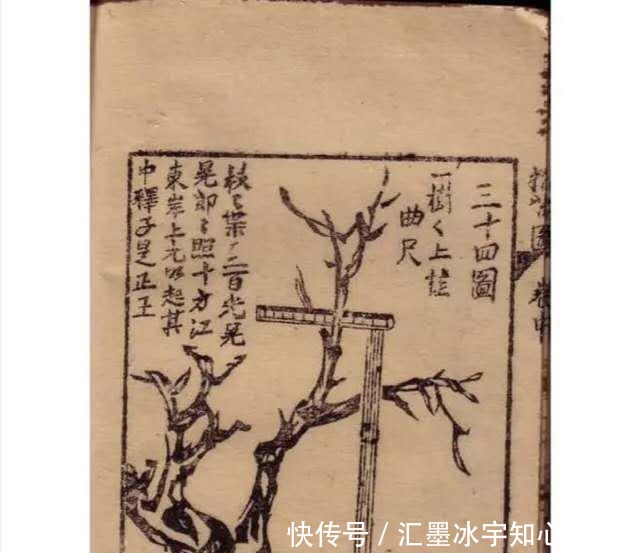 圖 卷中
三十四圖
一樹々上挂
曲尺
枝々葉々二百光晃
晃郎々照十方江
東岸上光明起其
中釋子是正王
快传号 / 汇墨冰宇知心